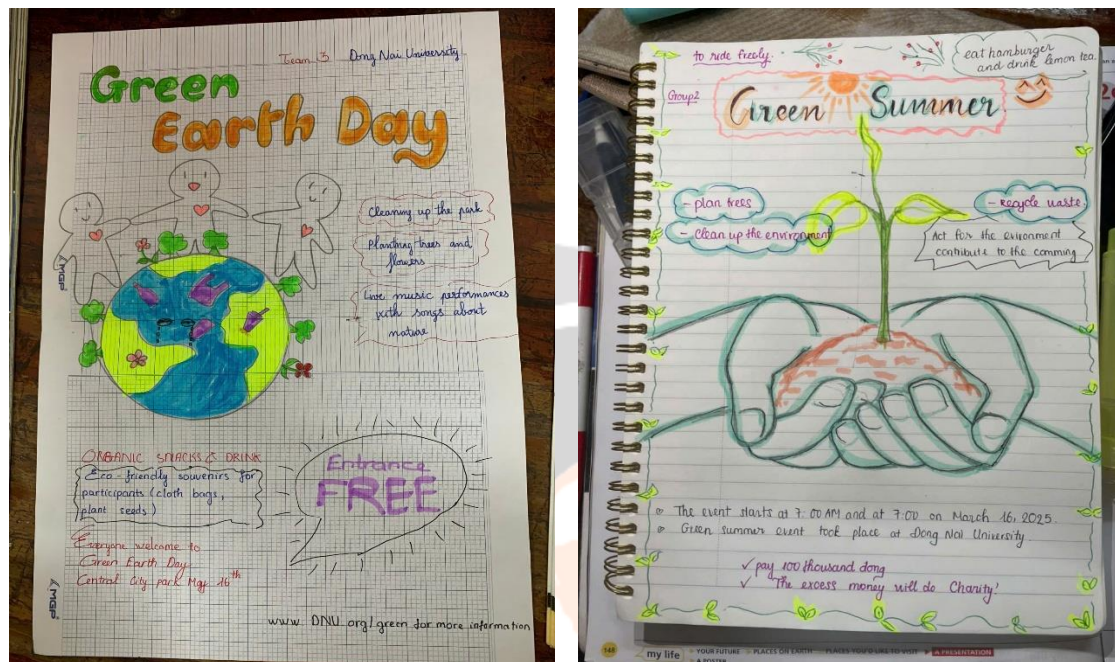 Team 3 Dong Nai University
Green
Earth Day
Cleaning up the park
Planting trees and
flowers
Live music performances
with songs about
nature
MGP
ORGANIC SNACKS & DRINK
Eco-friendly souvenirs for
participants (cloth bags,
plant seeds)
Entrance
FREE
Everyone welcome to
Green Earth Day
Central City park May 16th
MGP
www DNU.org/green for more information
to ride freely.
eat hamburger
and drink lemon tea.
Group 2
Green Summer
- plan trees
- Clean up the environment
- Recycle waste.
Act for the evironment
contribute to the comming
The event starts at 7:00 AM and at 7:00 on March 16, 2025.
Green summer event took place at Dong Nai University
✓ pay 100 thousand dong
✓ The excess money will do Charity!
148 my life ▸ YOUR FUTURE ▸ PLACES ON EARTH ▸ PLACES YOU'D LIKE TO VISIT ▸ A PRESENTATION
▸ A POSTER